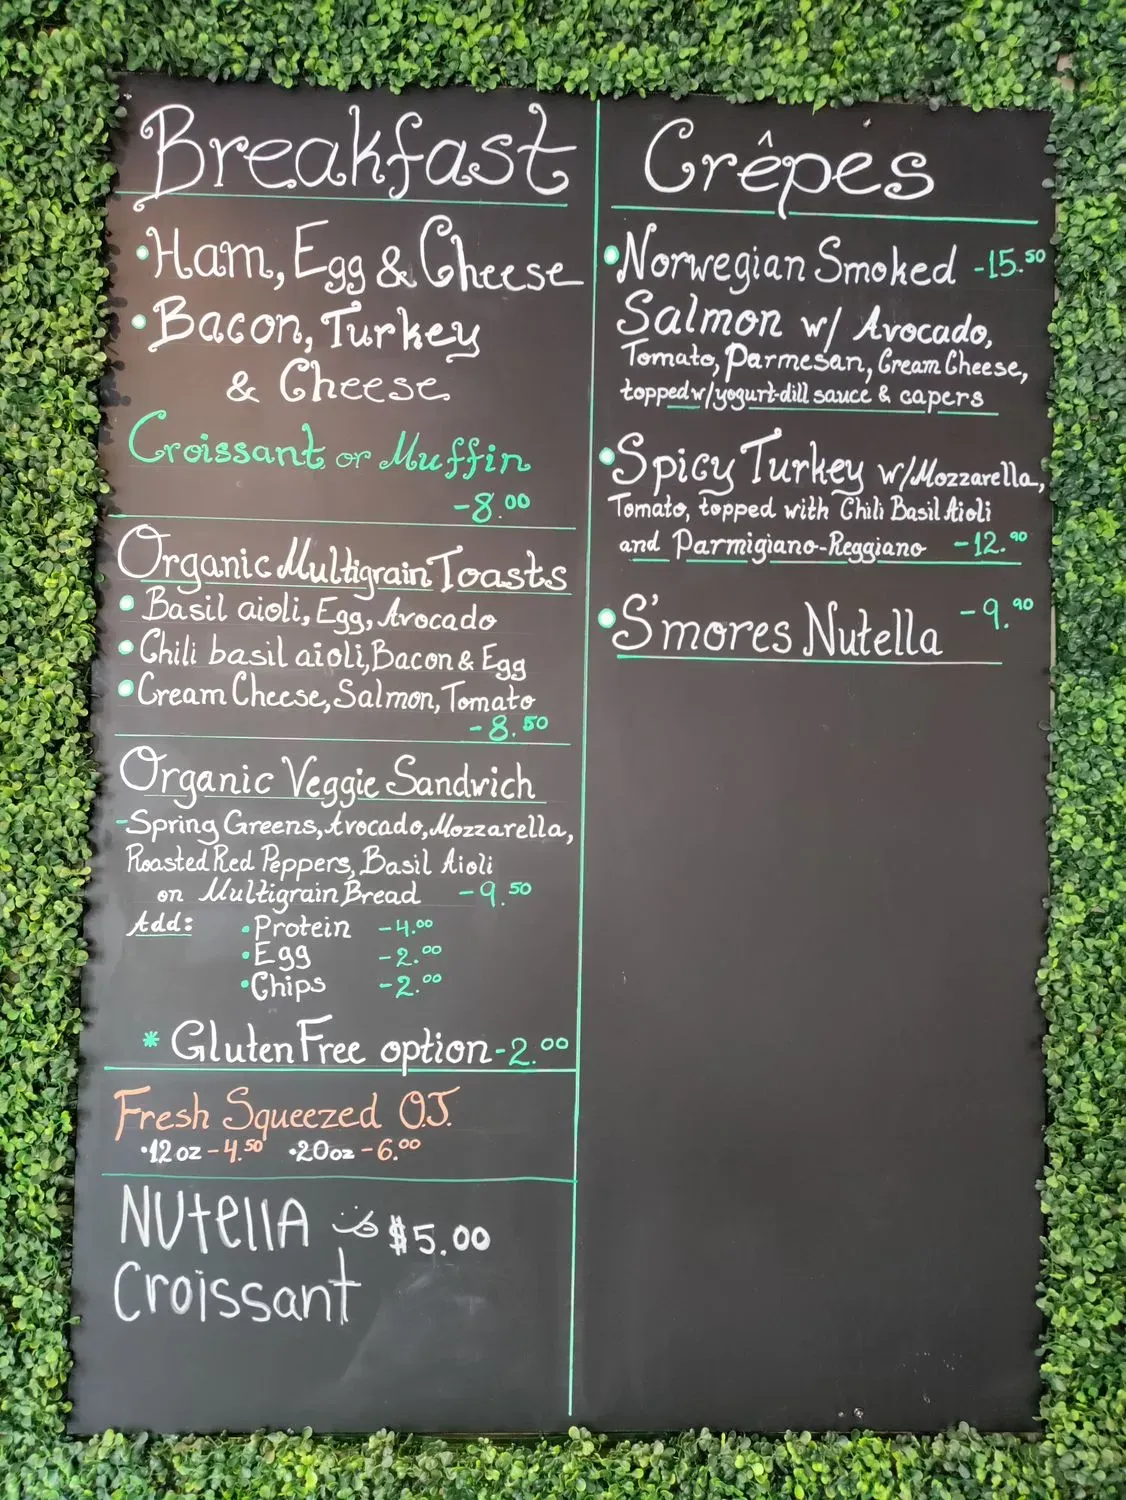 Breakfast
•Ham, Egg & Cheese
•Bacon, Turkey
& Cheese
Croissant or Muffin
-8.00
Organic Multigrain Toasts
• Basil aioli, Egg, Avocado
• Chili basil aioli, Bacon & Egg
• Cream Cheese, Salmon, Tomato
-8.50
Organic Veggie Sandwich
-Spring Greens, Avocado, Mozzarella,
Roasted Red Peppers, Basil Aioli
on Multigrain Bread -9.50
Add: •Protein -4.00
•Egg -2.00
•Chips -2.00
* Gluten Free option -2.00
Fresh Squeezed O.J.
•12oz -4.50 •20oz -6.00
NUtellA $5.00
Croissant
Crêpes
•Norwegian Smoked -15.50
Salmon w/ Avocado,
Tomato, Parmesan, Cream Cheese,
topped w/yogurt-dill sauce & capers
•Spicy Turkey w/Mozzarella,
Tomato, topped with Chili Basil Aioli
and Parmigiano-Reggiano -12.90
•S'mores Nutella -9.90